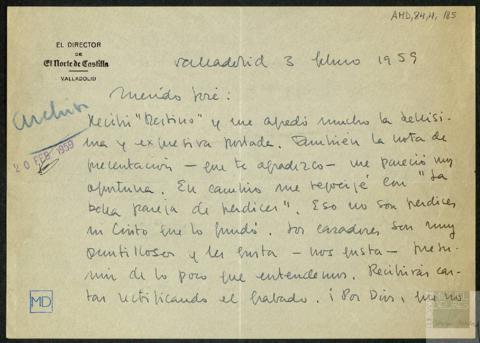 AMD,84,11,185
EL DIRECTOR
DE
El Norte de Castilla
VALLADOLID
Valladolid 3 febrero 1959
Archivo
20 FEB 1959
Querido José:
Recibí "Destino" y me agradó mucho la bellísi-
ma y expresiva portada. También la nota de
presentación — que te agradezco — me pareció muy
oportuna. En cambio me regocijé con "La
bella pareja de perdices". Eso no son perdices
ni Cristo que lo fundó. Los cazadores son muy
puntillosos y les gusta — nos gusta — presu-
mir de lo poco que entendemos. Recibirás car-
tas rectificando el grabado. ¡Por Dios, que no
MD